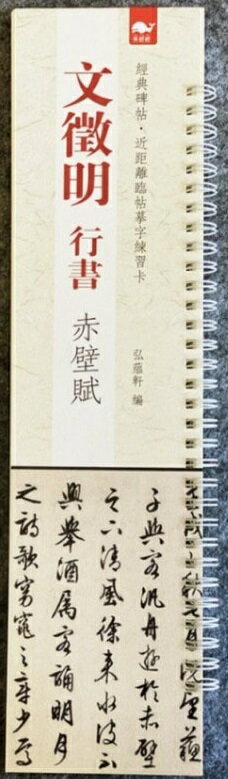 經典碑帖·近距離臨帖摹字練習卡
文徵明 行書 赤壁賦
弘蘊軒 編
壬戌之秋七月既望蘇
子與客汎舟遊於赤壁
之下清風徐來水波不
興舉酒屬客誦明月
之詩歌窈窕之章少焉